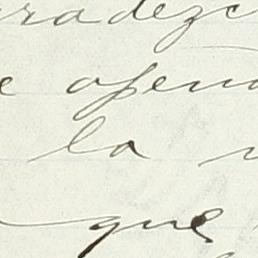 radezc
e ofen
la
que